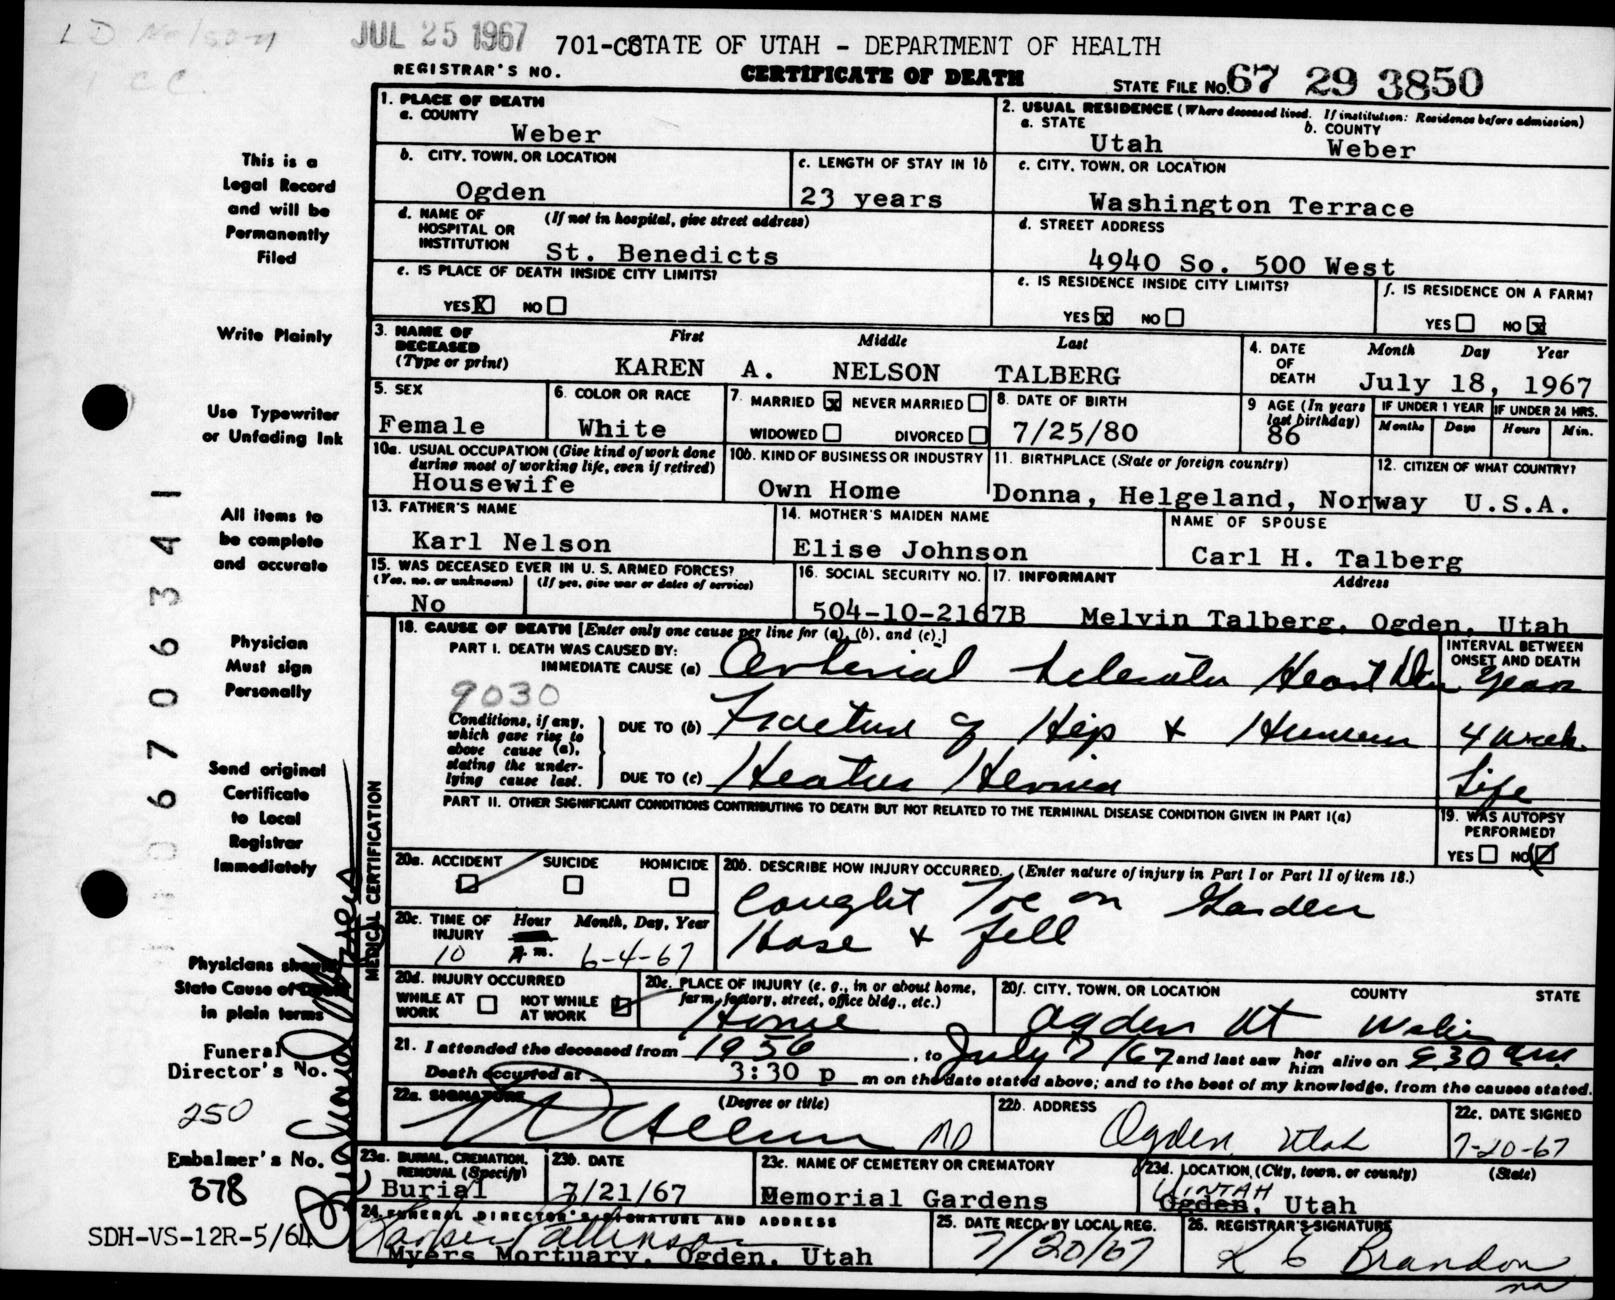 LD Nelson
1 CC.
JUL 25 1967
701-CS STATE OF UTAH - DEPARTMENT OF HEALTH
REGISTRAR'S NO.
CERTIFICATE OF DEATH
STATE FILE NO. 67 29 3850
1. PLACE OF DEATH
a. COUNTY
Weber
2. USUAL RESIDENCE (Where deceased lived. If institution: Residence before admission)
a. STATE
Utah
b. COUNTY
Weber
b. CITY, TOWN, OR LOCATION
Ogden
c. LENGTH OF STAY IN 1b
23 years
c. CITY, TOWN, OR LOCATION
Washington Terrace
d. NAME OF HOSPITAL OR INSTITUTION
(If not in hospital, give street address)
St. Benedicts
d. STREET ADDRESS
4940 So. 500 West
e. IS PLACE OF DEATH INSIDE CITY LIMITS?
YES X NO
e. IS RESIDENCE INSIDE CITY LIMITS?
YES X NO
f. IS RESIDENCE ON A FARM?
YES NO X
3. NAME OF DECEASED
(Type or print)
First Middle Last
KAREN A. NELSON TALBERG
4. DATE OF DEATH
Month Day Year
July 18, 1967
5. SEX
Female
6. COLOR OR RACE
White
7. MARRIED X NEVER MARRIED
WIDOWED DIVORCED
8. DATE OF BIRTH
7/25/80
9 AGE (In years last birthday)
86
IF UNDER 1 YEAR
Months Days
IF UNDER 24 HRS.
Hours Min.
10a. USUAL OCCUPATION (Give kind of work done during most of working life, even if retired)
Housewife
10b. KIND OF BUSINESS OR INDUSTRY
Own Home
11. BIRTHPLACE (State or foreign country)
Donna, Helgeland, Norway
12. CITIZEN OF WHAT COUNTRY?
U.S.A.
13. FATHER'S NAME
Karl Nelson
14. MOTHER'S MAIDEN NAME
Elise Johnson
NAME OF SPOUSE
Carl H. Talberg
15. WAS DECEASED EVER IN U. S. ARMED FORCES?
(Yes, no, or unknown) (If yes, give war or dates of service)
No
16. SOCIAL SECURITY NO.
504-10-2167B
17. INFORMANT Address
Melvin Talberg, Ogden, Utah
18. CAUSE OF DEATH [Enter only one cause per line for (a), (b), and (c).]
PART I. DEATH WAS CAUSED BY:
IMMEDIATE CAUSE (a) Arterial Heart
INTERVAL BETWEEN ONSET AND DEATH
Years
9030
Conditions, if any, which gave rise to above cause (a), stating the underlying cause last.
DUE TO (b) Fracture of Hip &
4 week
DUE TO (c) Heatus Hernia
Life
PART II. OTHER SIGNIFICANT CONDITIONS CONTRIBUTING TO DEATH BUT NOT RELATED TO THE TERMINAL DISEASE CONDITION GIVEN IN PART I(a)
19. WAS AUTOPSY PERFORMED?
YES NO
MEDICAL CERTIFICATION
20a. ACCIDENT SUICIDE HOMICIDE
20b. DESCRIBE HOW INJURY OCCURRED. (Enter nature of injury in Part I or Part II of item 18.)
Caught Toe on Garden
Hose & fell
20c. TIME OF INJURY
Hour Month, Day, Year
10 m. 6-4-67
20d. INJURY OCCURRED
WHILE AT WORK NOT WHILE AT WORK
20e. PLACE OF INJURY (e. g., in or about home, farm, factory, street, office bldg., etc.)
Home
20f. CITY, TOWN, OR LOCATION COUNTY STATE
Ogden Ut Weber
21. I attended the deceased from 1956, to July 7/67 and last saw her him alive on 9:30 am.
Death occurred at 3:30 p m on the date stated above; and to the best of my knowledge, from the causes stated.
22a. SIGNATURE (Degree or title)
MD
22b. ADDRESS
Ogden, Utah
22c. DATE SIGNED
7-20-67
23a. BURIAL, CREMATION, REMOVAL (Specify)
Burial
23b. DATE
7/21/67
23c. NAME OF CEMETERY OR CREMATORY
Memorial Gardens
23d. LOCATION (City, town, or county) (State)
UINTAH
Ogden, Utah
24. FUNERAL DIRECTOR'S SIGNATURE AND ADDRESS
Myers Mortuary, Ogden, Utah
25. DATE RECD. BY LOCAL REG.
7/20/67
26. REGISTRAR'S SIGNATURE
K E Brandon
This is a
Legal Record
and will be
Permanently
Filed
Write Plainly
Use Typewriter
or Unfading Ink
All items to
be complete
and accurate
Physician
Must sign
Personally
Send original
Certificate
to Local
Registrar
Immediately
Physicians should
State Cause of Death
in plain terms
Funeral
Director's No.
250
Embalmer's No.
378
SDH-VS-12R-5/64
0 6 7 0 6 3 4 1